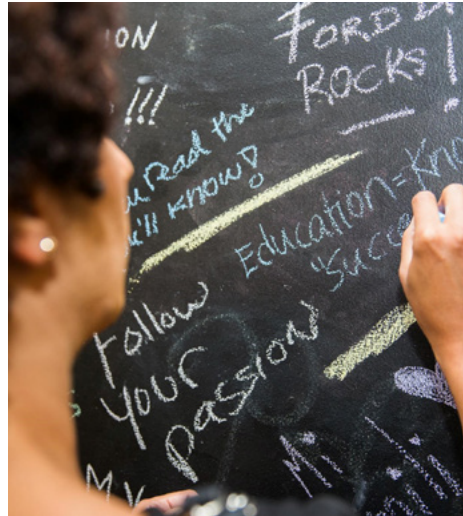 ION
!!!
FORD
ROCKS!
read the
u'll know!
Education=Kno
"Succe
Follow
your
passion
My
Mi